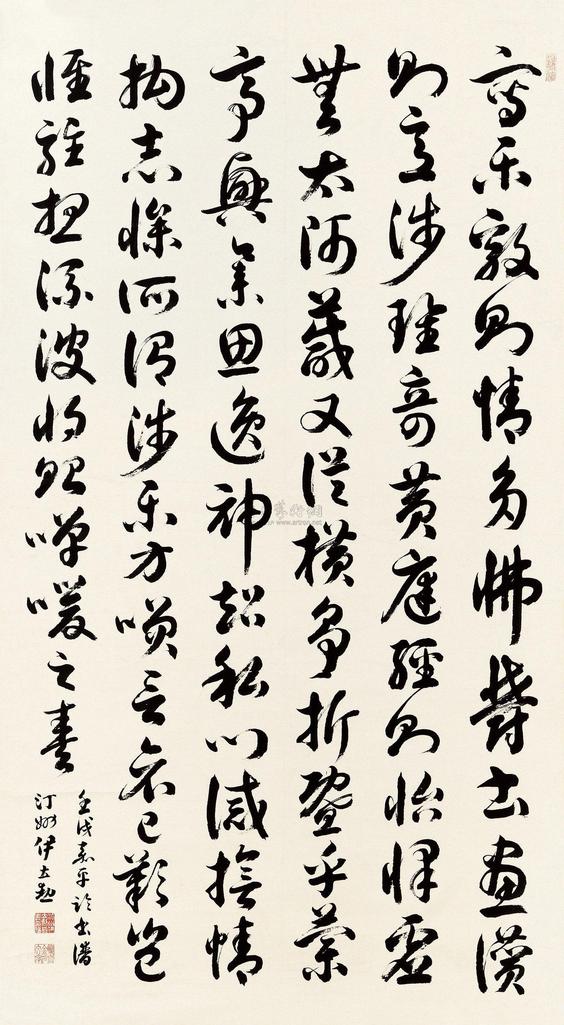 寫樂毅則情多怫鬱書畫讚
則意涉瑰奇黃庭經則怡懌虛
無太師箴又從橫爭折暨乎蘭
亭興集思逸神超私門誡誓情
拘志慘所謂涉樂方咲言哀已歎豈
惟駐想流波將貽嘽喛之奏
壬戌嘉平臨書譜
汀州伊立勳